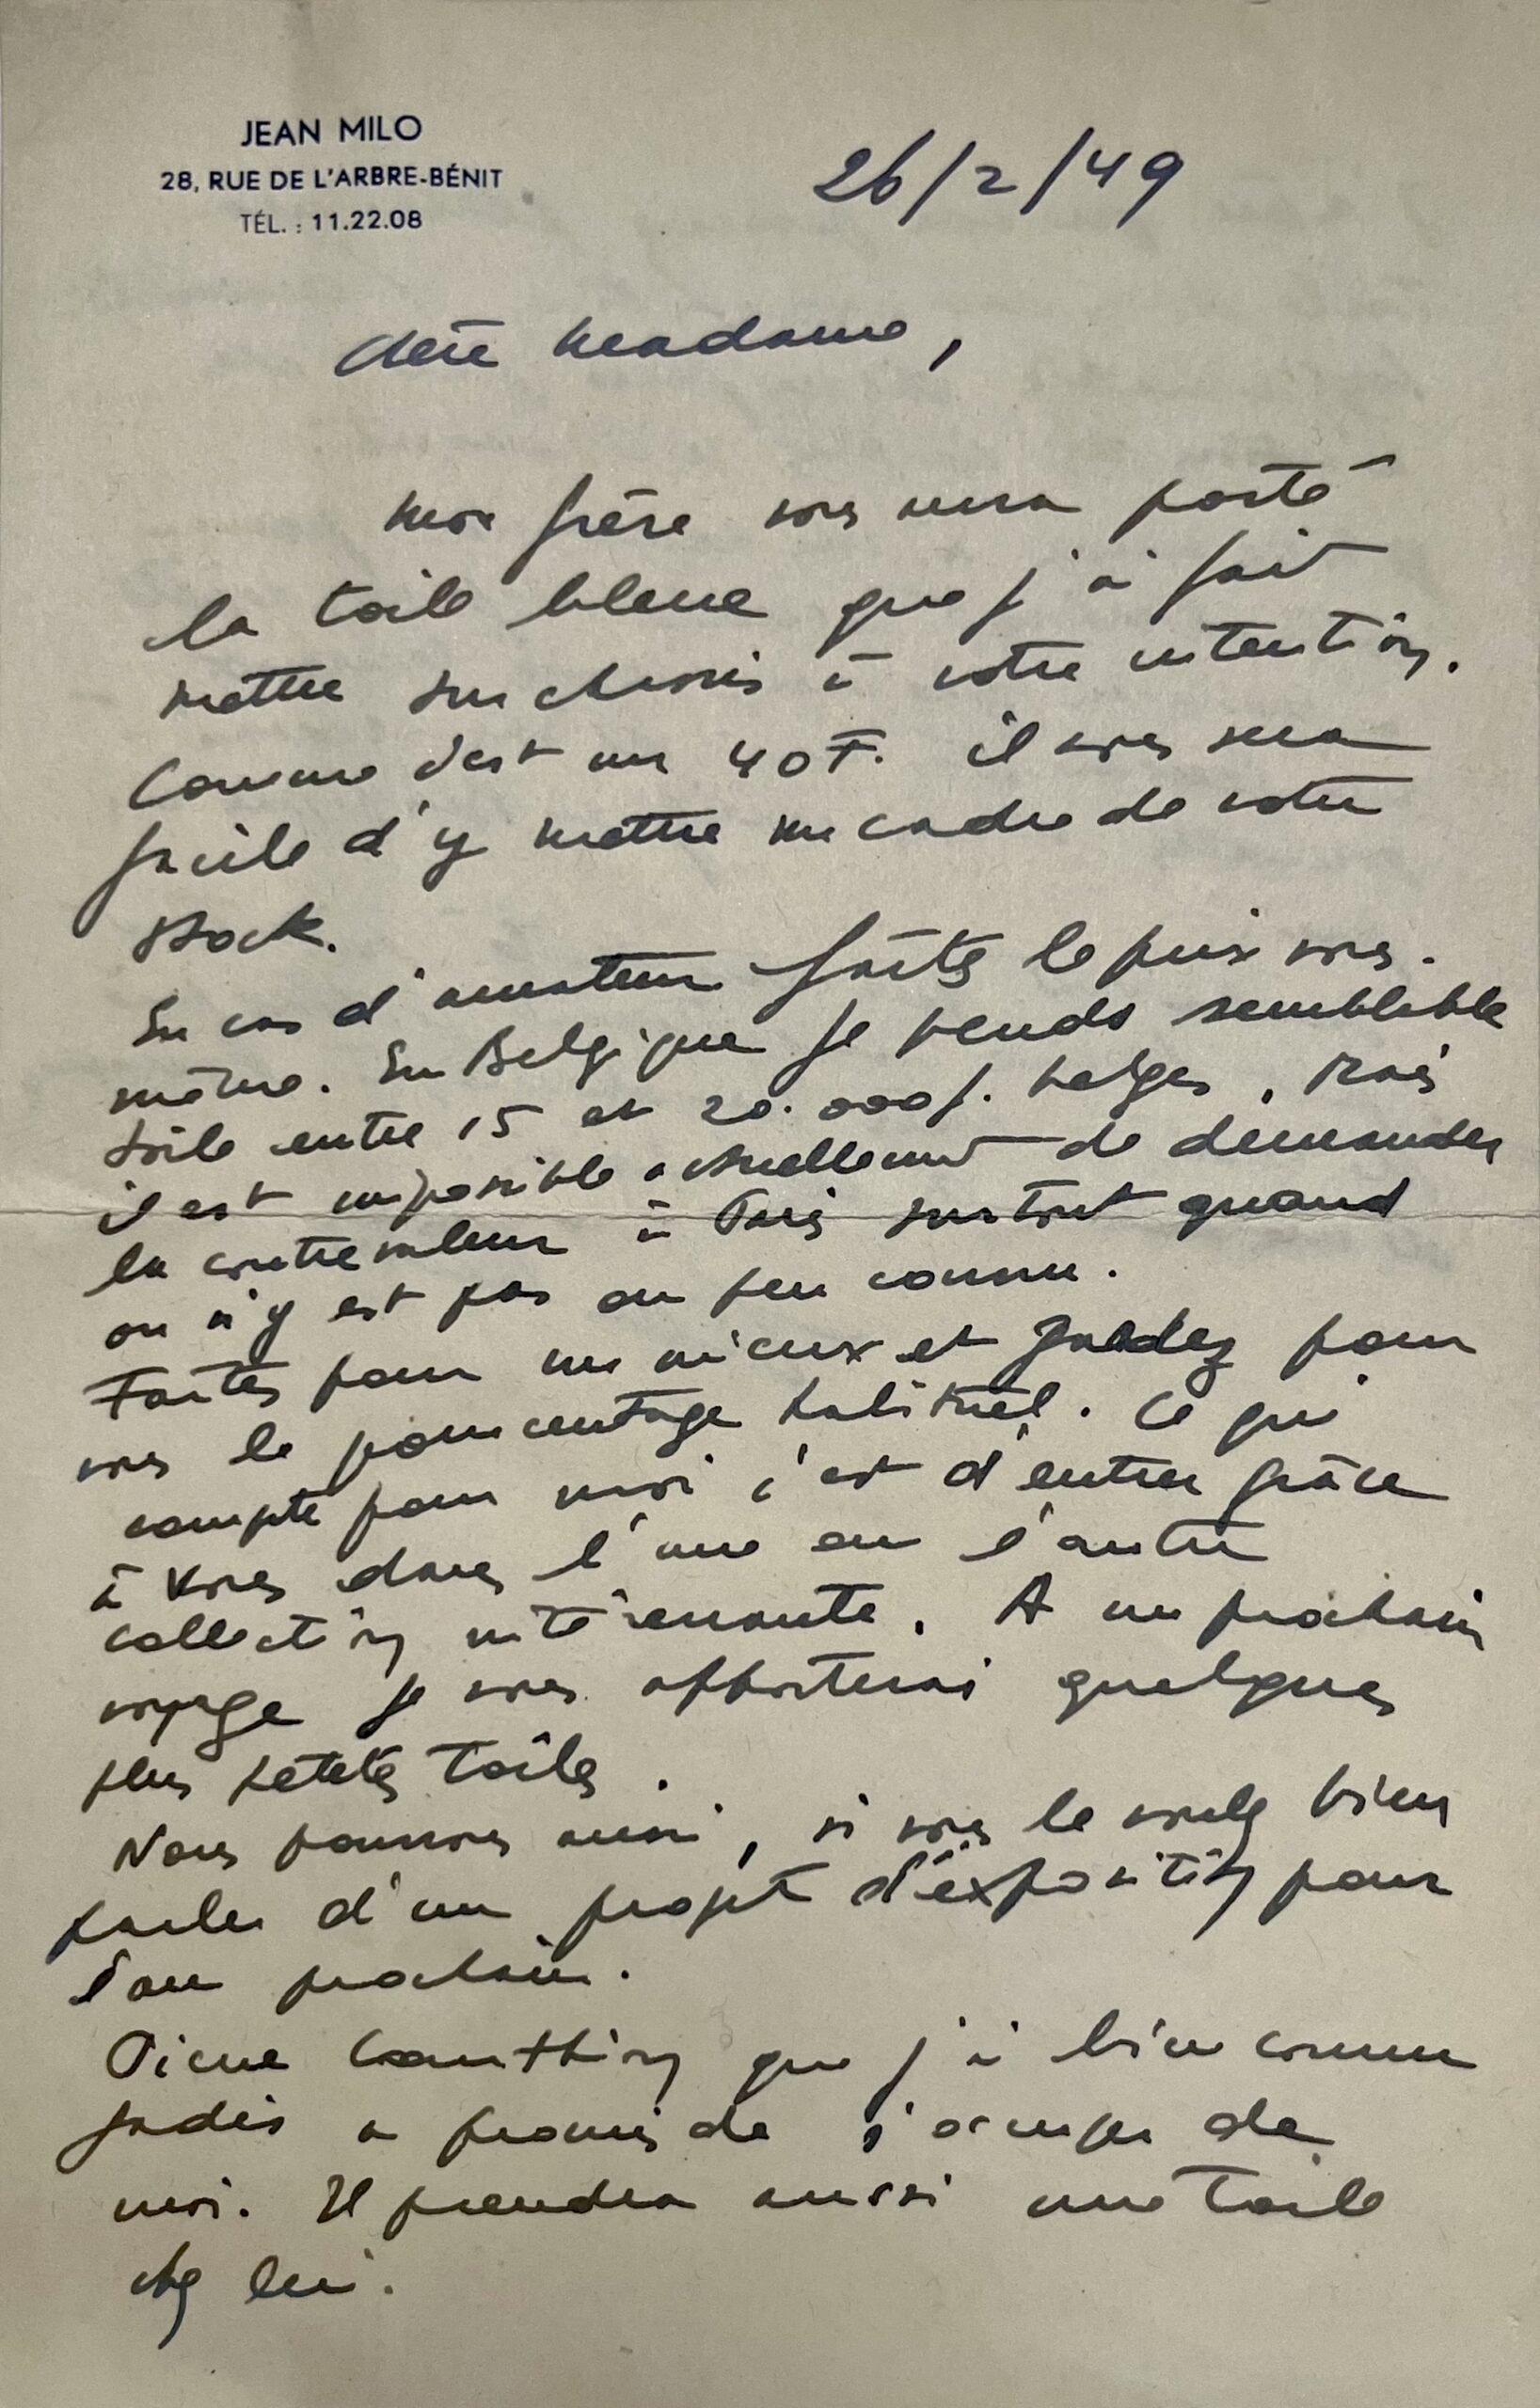 JEAN MILO
28, RUE DE L'ARBRE-BÉNIT
TÉL. : 11.22.08
26/2/49
Chère Madame,
Mon frère vous aura porté
la toile bleue que j'ai fait
mettre sur chassis à votre intention.
Comme c'est un 40 F. il vous sera
facile d'y mettre un cadre de votre
stock.
En cas d'amateur faites le prix vous-
même. En Belgique je vends semblable
toile entre 15 et 20.000 f. belges. Mais
il est impossible actuellement de demander
la contrevaleur à Paris surtout quand
on n'y est pas ou peu connu.
Faites pour un mieux et gardez pour
vous le pourcentage habituel. Ce qui
compte pour moi c'est d'entrer grâce
à vous dans l'une ou l'autre
collection intéressante. A un prochain
voyage je vous apporterai quelques
plus petites toiles.
Nous pourrons aussi, si vous le voulez bien
parler d'un projet d'exposition pour
l'an prochain.
Pierre Courthion que j'ai bien connu
jadis a promis de s'occuper de
moi. Il prendra aussi une toile
chez lui.